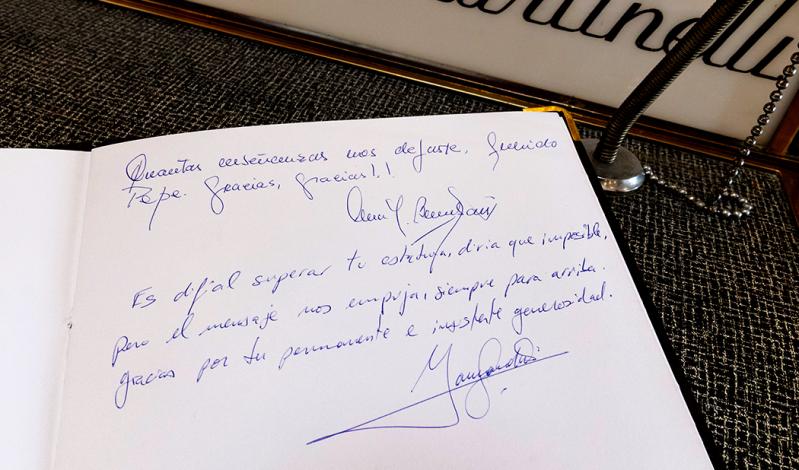 artinelli
Quantas enseñanzas nos dejaste, Querido
Pepe. Gracias, Gracias!!
Es difícil superar tu estatura, diria que imposible,
pero el mensaje nos empuja, siempre para arriba.
Gracias por tu permanente e insistente generosidad.